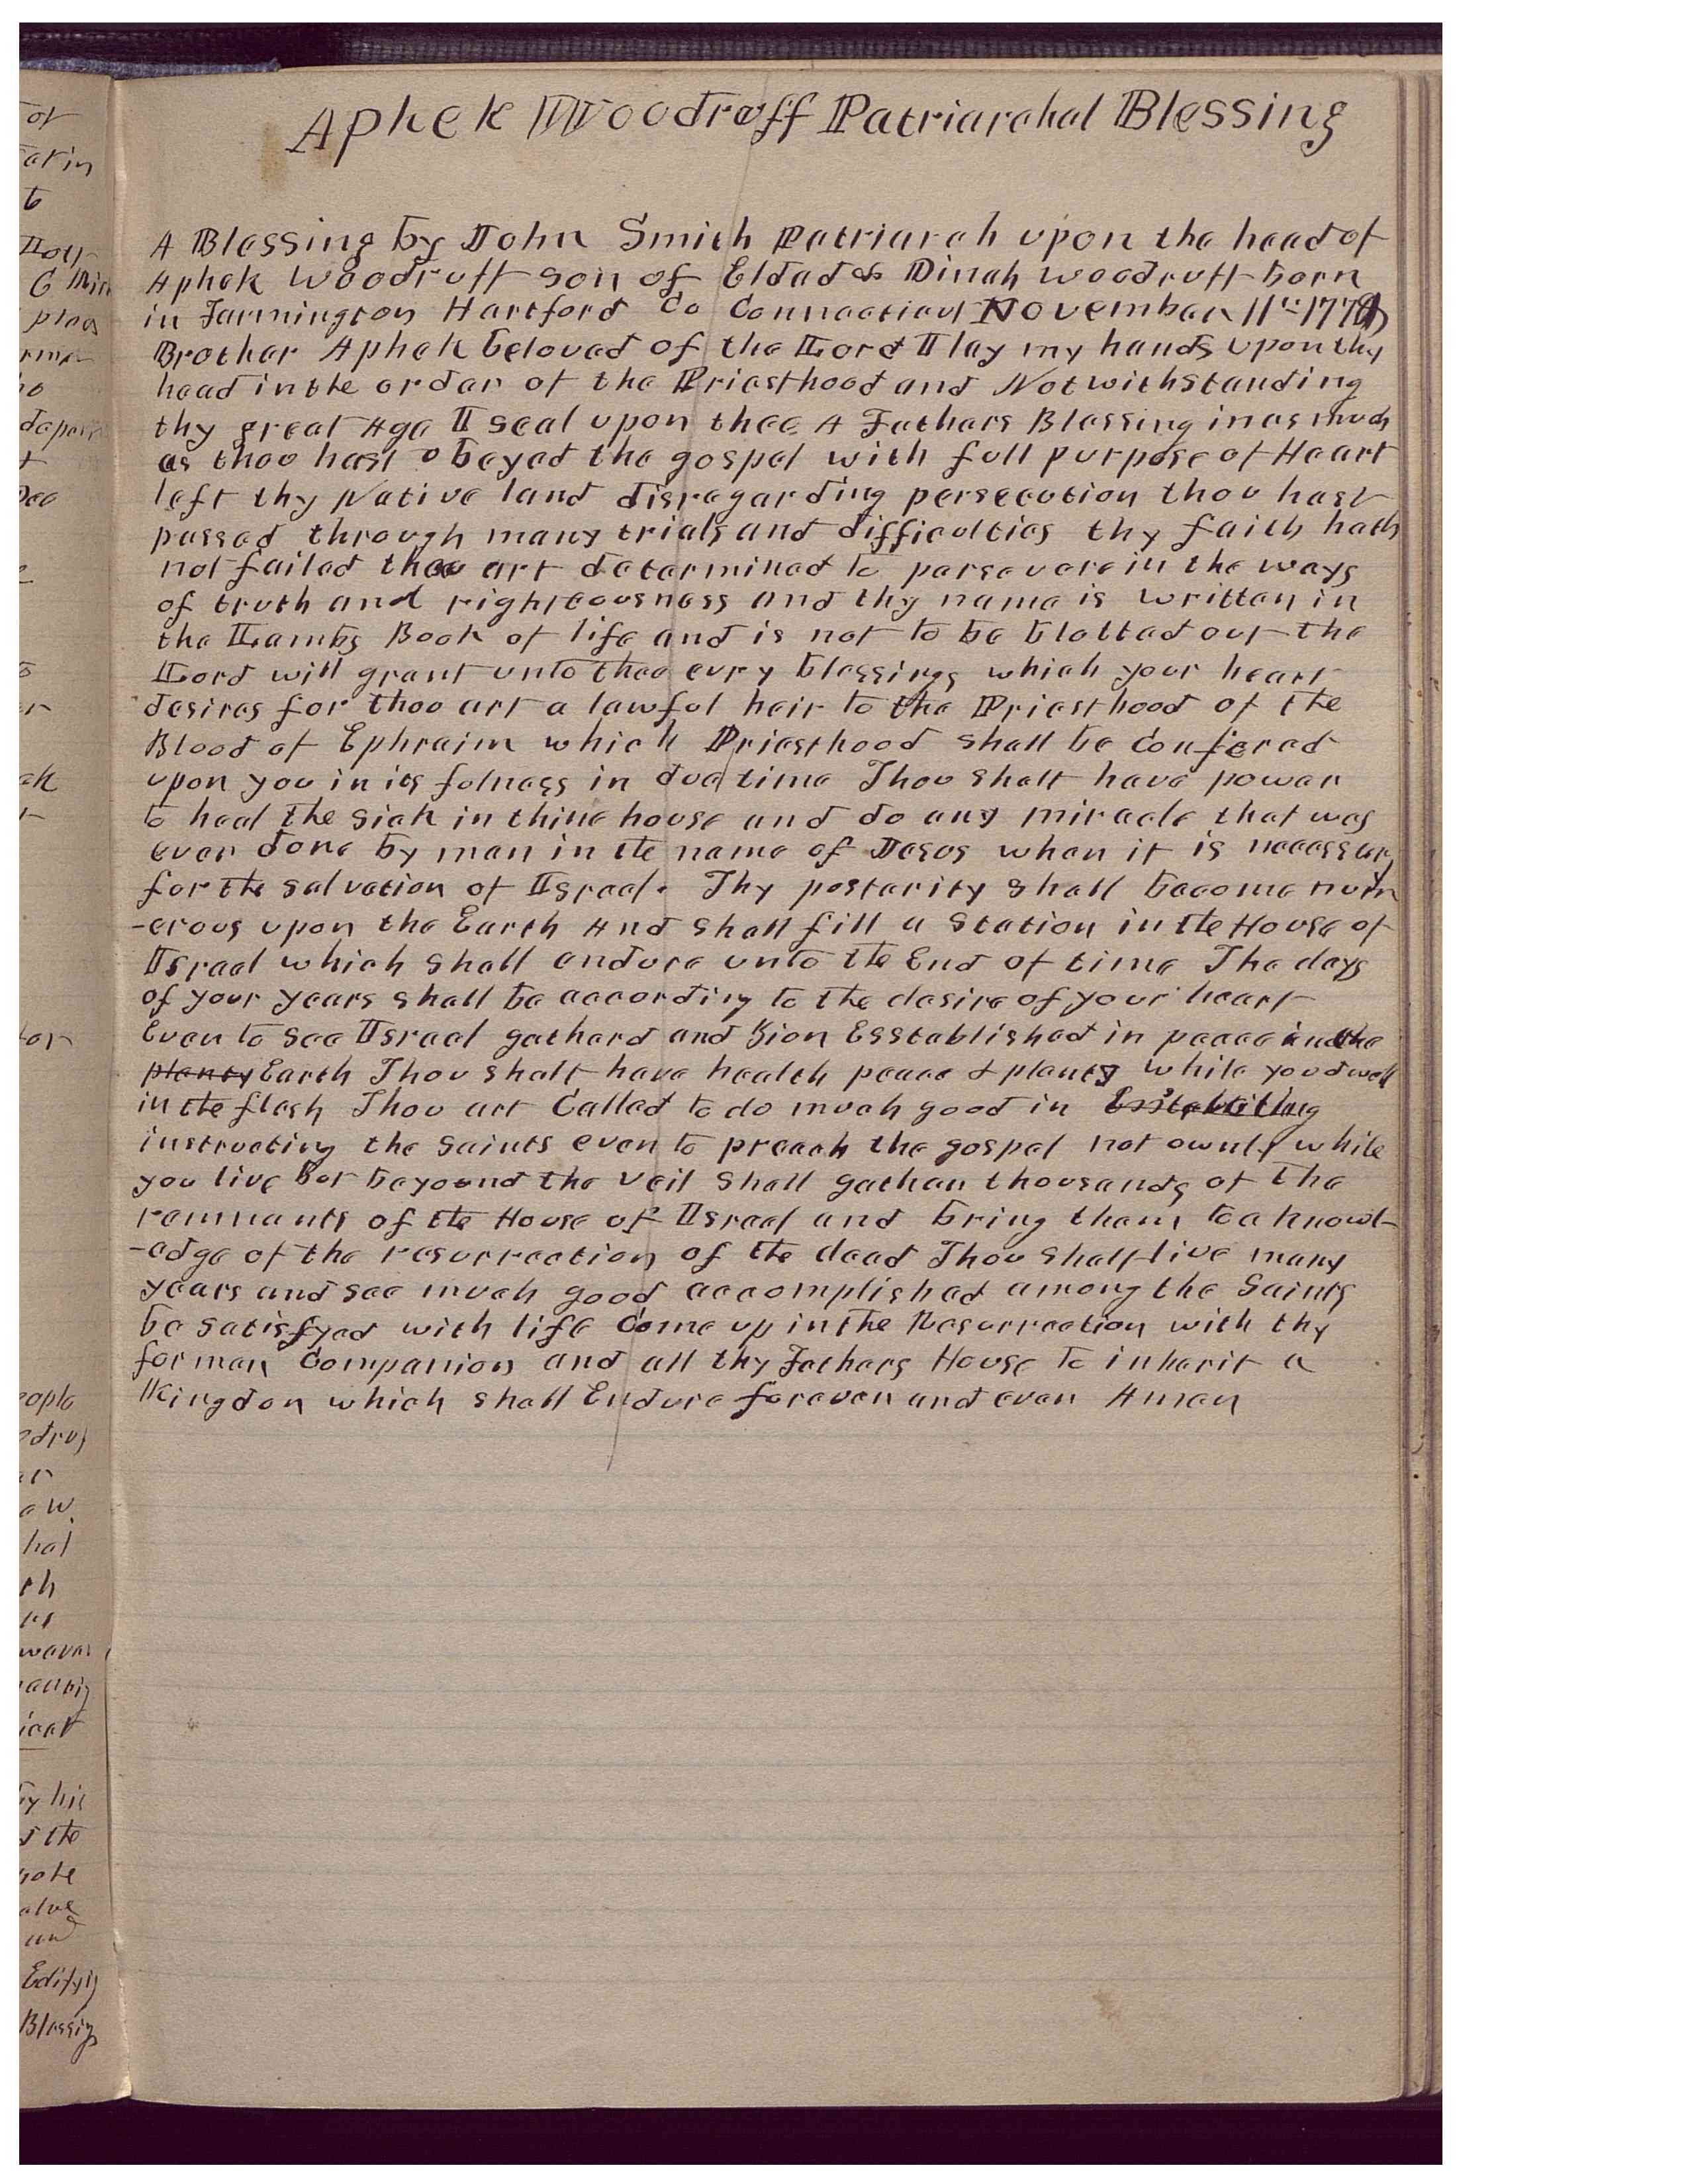 Aphek Woodruff Patriarchal Blessing
A Blessing by John Smith Patriarch upon the head of
Aphek Woodruff son of Eldad & Dinah Woodruff born
in Farmington Hartford Co Connecticut November 11th 1778
Brother Aphek beloved of the Lord I lay my hands upon thy
head in the order of the Priesthood and Notwithstanding
thy great Age I seal upon thee A Fathers Blessing in as much
as thou hast obeyed the gospel with full purpose of Heart
left thy Native land disregarding persecution thou hast
passed through many trials and difficulties thy faith hath
not failed thou art determined to persevere in the ways
of truth and righteousness and thy name is written in
the Lambs Book of life and is not to be blotted out the
Lord will grant unto thee evry blessings which your heart
desires for thou art a lawful heir to the Priesthood of the
Blood of Ephraim which Priesthood shall be Confered
upon you in its fulness in due time Thou shalt have power
to heal the sick in thine house and do any miracle that was
ever done by man in the name of Jesus when it is necessary
for the salvation of Israel. Thy posterity shall become num
-erous upon the Earth And shall fill a Station in the House of
Israel which shall endure unto the End of time The days
of your years shall be according to the desire of your heart
Even to see Israel gatherd and Zion Esstablished in peace in the
planty Earth Thou shalt have health peace & planty while you dwell
in the flesh Thou art Called to do much good in
instructing the saints even to preach the gospel not ownly while
you live but beyound the veil shall gather thousands of the
remnants of the House of Israel and bring them to a knowl-
-edge of the resurrection of the dead Thou shalt live many
years and see much good accomplished among the Saints
be satisfyed with life Come up in the Resurrection with thy
former Companion and all thy Fathers House to inherit a
Kingdon which shall Endure forever and ever Amen